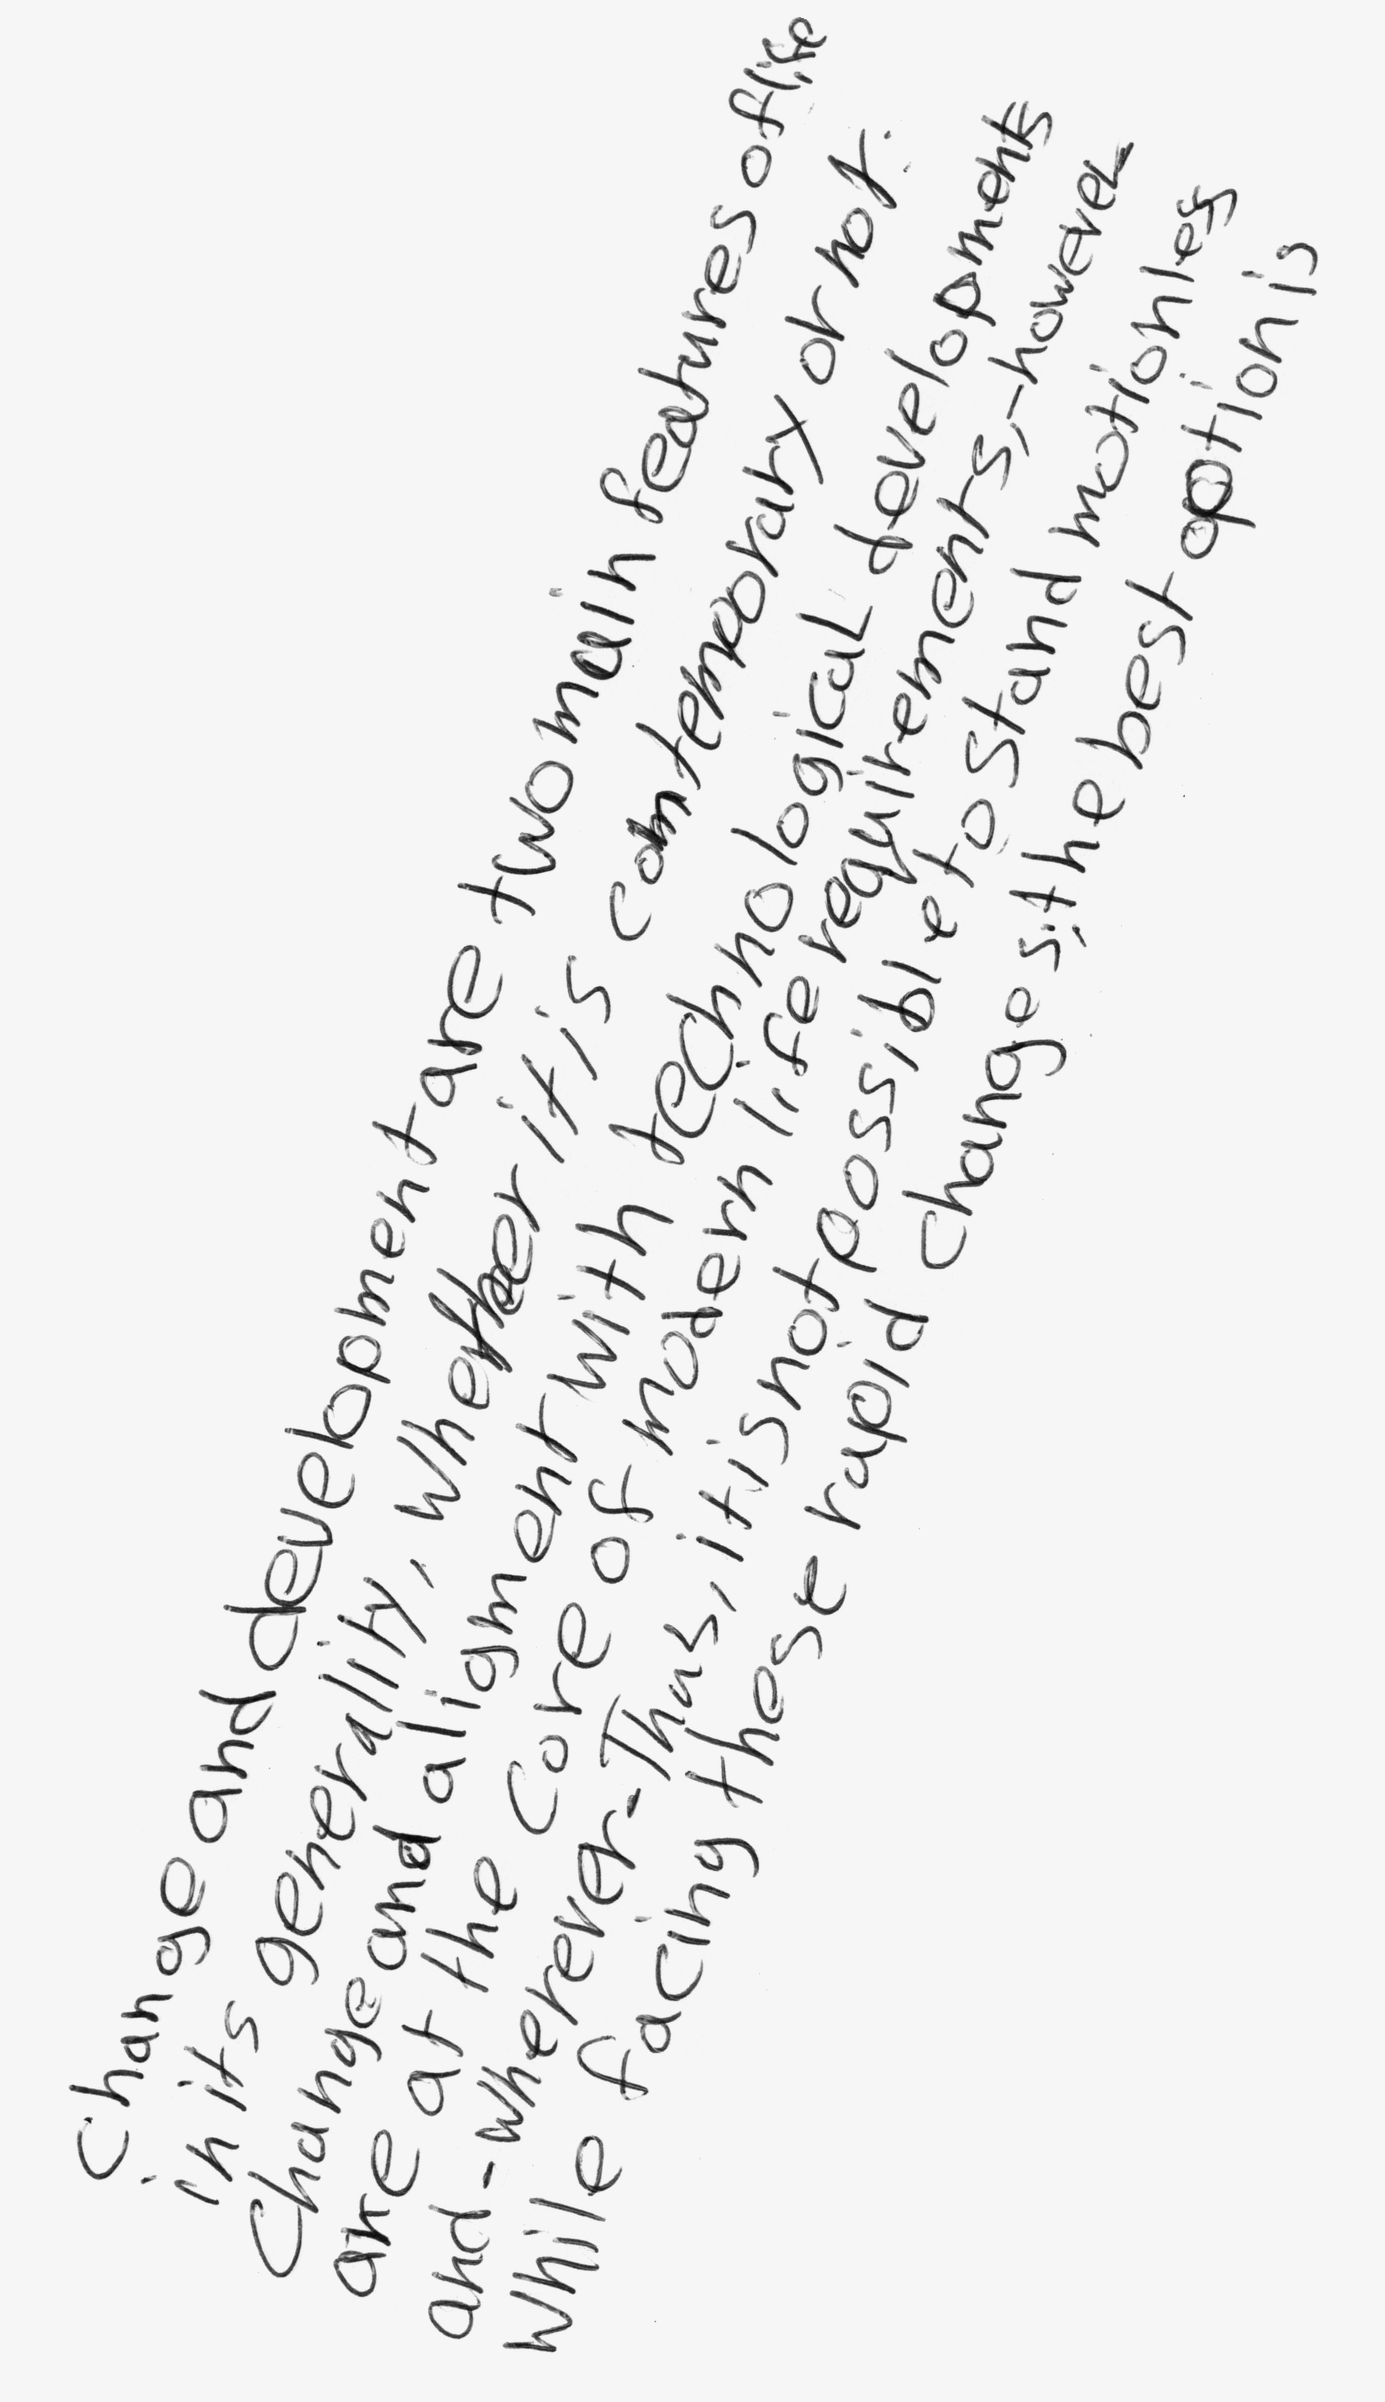 Change and development are two main features of life
in its generality, whether it is contemporary or not.
Change and alignment with technological developments
are at the core of modern life requirements,-however
and-wherever-Thus, it is not possible to stand motionless
while facing these rapid changes; the best option is